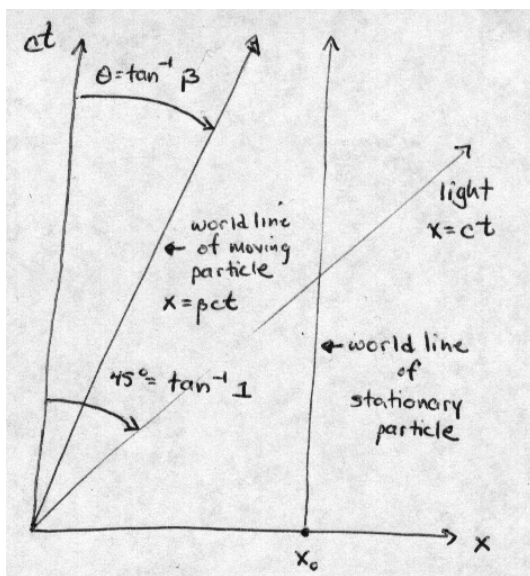 ct
θ=tan⁻¹ β
light
x=ct
world line
of moving
particle
x=βct
45°=tan⁻¹ 1
world line
of
stationary
particle
x₀
x